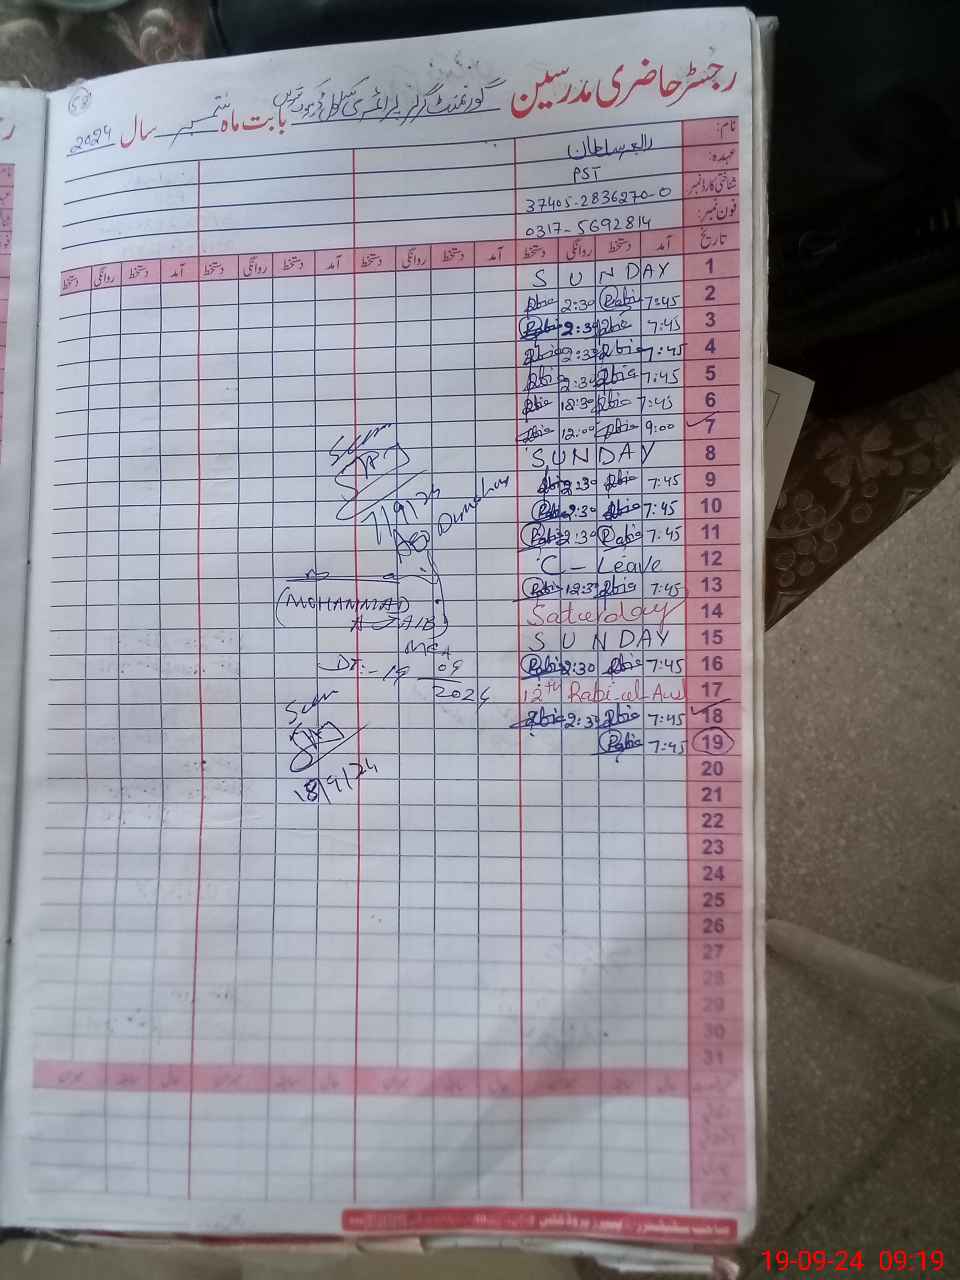 58
رجسٹر حاضری مدرسین گورنمنٹ گرلز پرائمری سکول بابت ماہ ستمبر سال 2024
نام:
عہدہ: PST
شناختی کارڈ نمبر: 37405-2836270-0
فون نمبر: 0317-5692814
تاریخ آمد دستخط روانگی دستخط آمد دستخط روانگی دستخط آمد دستخط روانگی دستخط آمد دستخط روانگی دستخط
1 SUNDAY
2 7:45 Rabia 2:30 Rabia
3 7:45 Rabia 2:30 Rabia
4 7:45 Rabia 2:30 Rabia
5 7:45 Rabia 2:30 Rabia
6 7:45 Rabia 12:30 Rabia
7 9:00 Rabia 12:00 Rabia
8 SUNDAY
9 7:45 Rabia 2:30 Rabia
10 7:45 Rabia 2:30 Rabia
11 7:45 Rabia 2:30 Rabia
12 C-Leave
13 7:45 Rabia 12:30 Rabia
14 Saturday
15 SUNDAY
16 7:45 Rabia 2:30 Rabia
17 12th Rabi-ul-Awl
18 7:45 Rabia 2:30 Rabia
19 7:45 Rabia
20
21
22
23
24
25
26
27
28
29
30
31
Seen
7/9/24
(MOHAMMAD
MEA
DT:- 19
09
2024
Seen
18/9/24
19-09-24 09:19